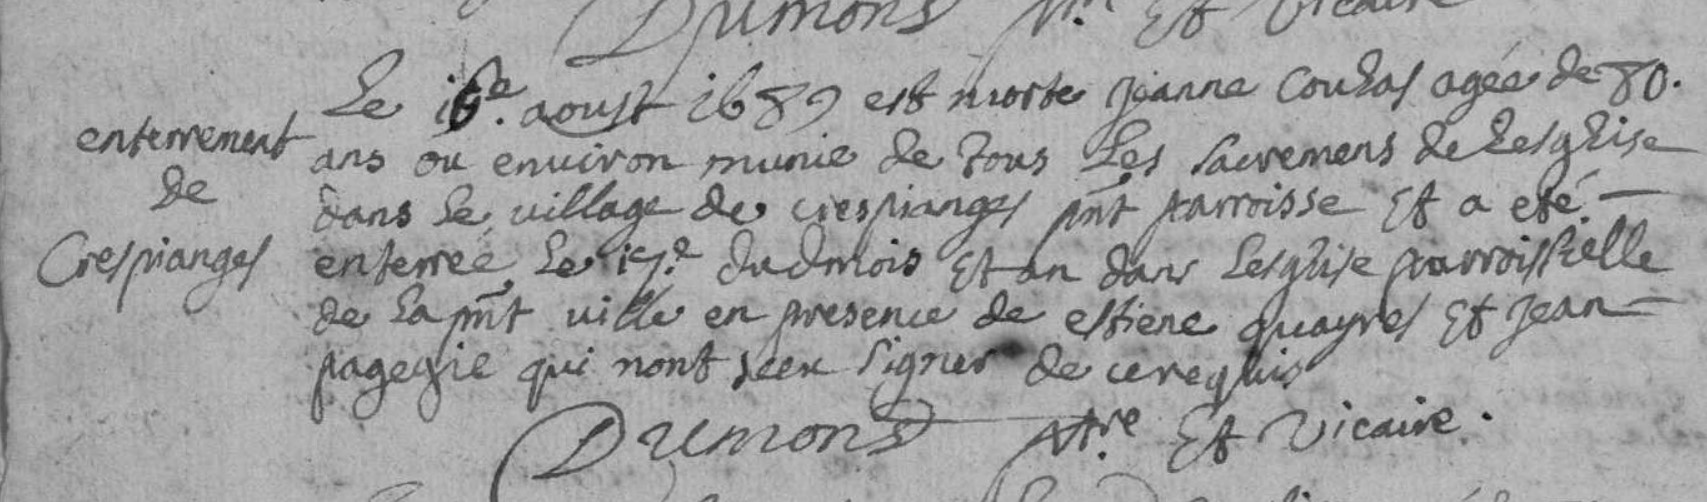 Dumons ptre Et vicaire
Le 16e. aoust 1689 est morte Jeanne Coulas agée de 80.
enterrement
ans ou environ munie de tous Les sacremens de Lesglise
de
dans Le village de crespianges pnt parroisse Et a eté
Crespianges
enterreé Le 17.e dudmois Et an dans Lesglise parroissielle
de La pnt ville en presence de estiene quayres Et Jean
pagegie qui nont sceu signer de ce requis
Dumons ptre Et Vicaire.